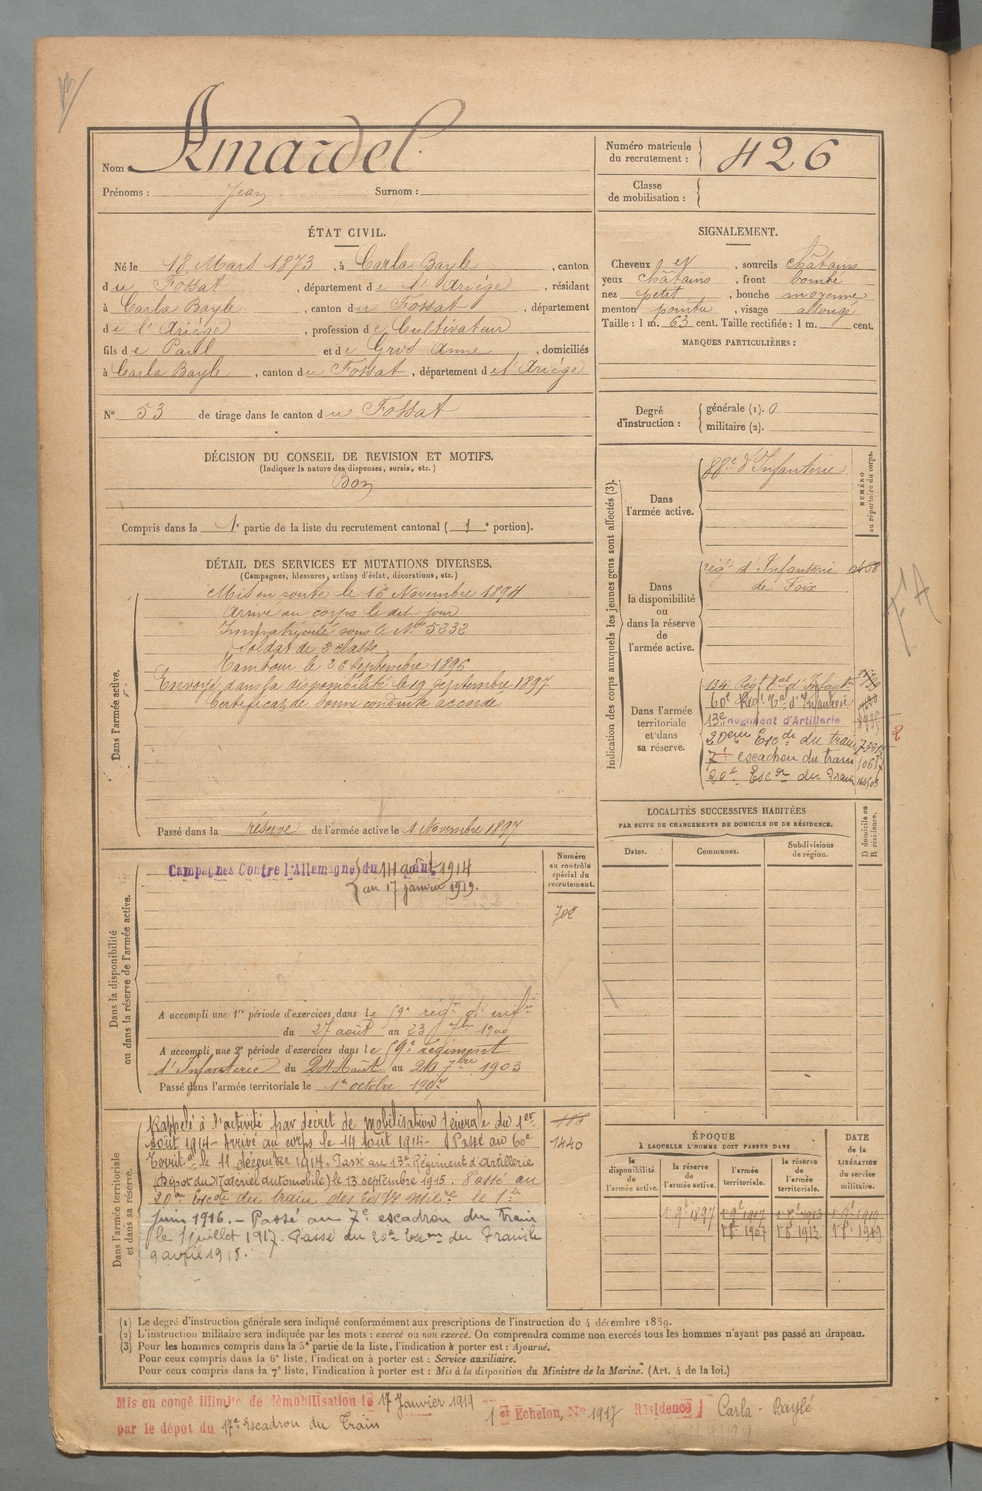 Nom Amardel
Numéro matricule du recrutement : 426
Prénoms : Jean Surnom :
Classe de mobilisation :
ÉTAT CIVIL.
Né le 18 Mars 1873, à Carla Bayle, canton
du Fossat, département de l'Ariège, résidant
à Carla Bayle, canton du Fossat, département
de l'Ariège, profession de Cultivateur
fils de Paul et de Gros Anne, domiciliés
à Carla Bayle, canton du Fossat, département de l'Ariège
SIGNALEMENT.
Cheveux et, sourcils châtains
yeux châtains, front bombé
nez petit, bouche moyenne
menton pointu, visage allongé
Taille : 1 m. 63 cent. Taille rectifiée : 1 m. cent.
MARQUES PARTICULIÈRES :
N° 53 de tirage dans le canton du Fossat
Degré d'instruction : générale (1). 0
militaire (2).
DÉCISION DU CONSEIL DE REVISION ET MOTIFS.
(Indiquer la nature des dispenses, sursis, etc.)
Bon
Compris dans la 1e partie de la liste du recrutement cantonal (1e portion).
Indication des corps auxquels les jeunes gens sont affectés (3).
NUMÉRO au répertoire du corps.
Dans l'armée active.
d'Infanterie
Dans la disponibilité ou dans la réserve de l'armée active.
régt d'Infanterie
de Foix
Dans l'armée territoriale et dans sa réserve.
134e Régt Tal d'Infanterie
60e Régt Tal d'Infanterie
13e Régiment d'Artillerie
20eme Escon du train
7e escadron du train
20e Escon du Train
DÉTAIL DES SERVICES ET MUTATIONS DIVERSES.
(Campagnes, blessures, actions d'éclat, décorations, etc.)
Dans l'armée active.
Mis en route le 16 Novembre 1894
Arrivé au corps le dit jour
Immatriculé sous le N° 5332
Soldat de 2 classe
Tambour le 26 Septembre 1896
Envoyé dans la disponibilité le 19 Septembre 1897
Certificat de bonne conduite accordé
Passé dans la réserve de l'armée active le 1 Novembre 1897
LOCALITÉS SUCCESSIVES HABITÉES
PAR SUITE DE CHANGEMENTS DE DOMICILE OU DE RÉSIDENCE.
D domicile ou R résidence.
Dates. Communes. Subdivisions de région.
Dans la disponibilité ou dans la réserve de l'armée active.
Numéro au contrôle spécial du recrutement.
Campagnes Contre l'Allemagne du 14 août 1914
au 17 janvier 1919.
A accompli une 1re période d'exercices dans le 59e régt d'infie
du 27 août au 23 7bre 1900
A accompli une 2e période d'exercices dans le 59e régiment
d'Infanterie du 24 Août au 20 7bre 1903
Passé dans l'armée territoriale le 1er octobre 1907
Dans l'armée territoriale et dans sa réserve.
1440
Rappelé à l'activité par décret de mobilisation générale du 1er
Août 1914 - Arrivé au corps le 14 Août 1914 - Passé au 60e
Territal le 11 décembre 1914. Passé au 13e Régiment d'Artillerie
(Dépot du Matériel automobile) le 13 septembre 1915. Passé au
20eme Escon du train des Eq Mres le 1er
Juin 1916. - Passé au 7e escadron du Train
le 1 juillet 1917. Passé du 20e Escon du Train le
9 avril 1918.
ÉPOQUE
À LAQUELLE L'HOMME DOIT PASSER DANS
DATE de la LIBÉRATION du service militaire.
la disponibilité de l'armée active. la réserve de l'armée active. l'armée territoriale. la réserve de l'armée territoriale.
(1) Le degré d'instruction générale sera indiqué conformément aux prescriptions de l'instruction du 4 décembre 1889.
(2) L'instruction militaire sera indiquée par les mots : exercé ou non exercé. On comprendra comme non exercés tous les hommes n'ayant pas passé au drapeau.
(3) Pour les hommes compris dans la 5e partie de la liste, l'indication à porter est : Ajourné.
Pour ceux compris dans la 6e liste, l'indication à porter est : Service auxiliaire.
Pour ceux compris dans la 7e liste, l'indication à porter est : Mis à la disposition du Ministre de la Marine. (Art. 4 de la loi.)
Mis en congé illimité de démobilisation le 17 Janvier 1919
1er Echelon, N° 1917 Résidence Carla-Baylé
par le dépot du 17e Escadron du Train